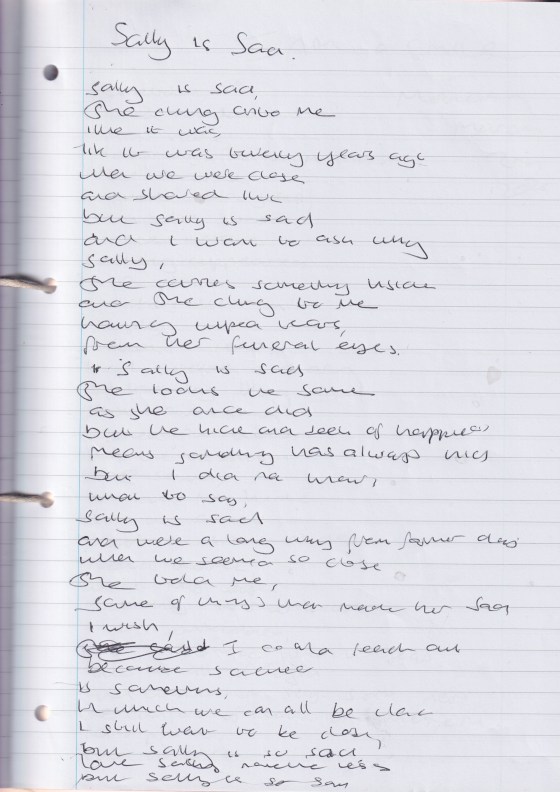 Sally is Sad.
Sally is sad,
She clung onto me
like it was,
lik it was twenty years ago
when we were close
and shared
but sally is sad
and I want to ask why
Sally,
She carries something inside
and She clung to me
having wiped tears,
from her funeral eyes.
Sally is sad
She looks the same
as she once did
but the hide and seek of happiness
means something has always
but I did na know,
what to say,
Sally is sad
and we're a long way from former days
when we seemed so close
She told me,
some of things that made her sad
I wish,
I could reach out
because sadness
is something,
in which we can all be
I still want to be close,
but sally is so sad
love sally
but sally is so sad